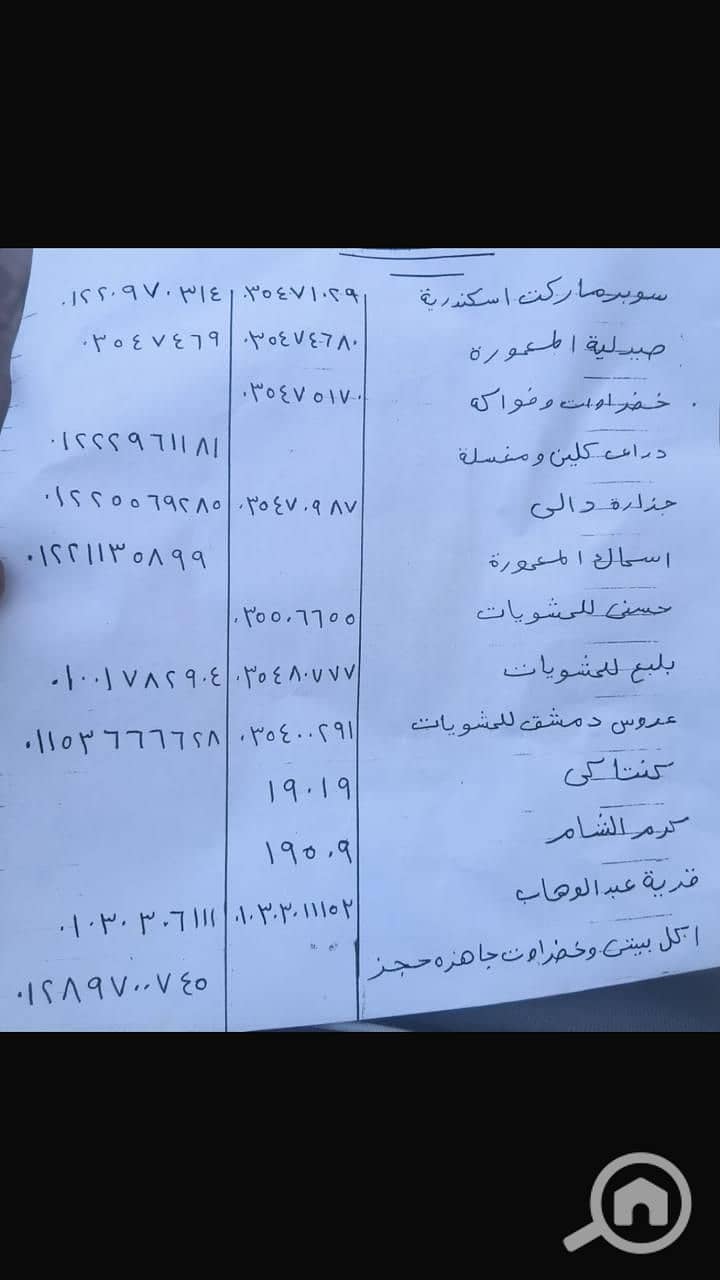 سوبر ماركت اسكندرية ٠٣٥٤٧١٠٢٩ ٠١٢٢٠٩٧٠٣١٤
صيدلية المعمورة ٠٣٥٤٧٤٦٨٠ ٠٣٥٤٧٤٦٩
خضراوات وفواكة ٠٣٥٤٧٥١٧٠
دراى كلين ومغسلة ٠١٢٢٢٩٦١١٨١
جزارة دالى ٠٣٥٤٧٠٩٨٧ ٠١٢٢٥٠٦٩٢٨٥
اسماك المعمورة ٠١٢٢١١٣٥٨٩٩
حسنى للمشويات ٠٣٥٥٠٦٦٥٥
بلبع للمشويات ٠٣٥٤٨٠٧٧٧ ٠١٠٠١٧٨٢٩٠٤
عروس دمشق للمشويات ٠٣٥٤٠٠٢٩١ ٠١١٥٣٦٦٦٦٢٨
كنتاكى ١٩٠١٩
كرم الشام ١٩٥٠٩
قرية عبد الوهاب ٠١٠٣٠٣٠١١١٥٢ ٠١٠٣٠٣٠٦١١١
اكل بيتى وخضراوت جاهزه حجز ٠١٢٨٩٧٠٠٧٤٥